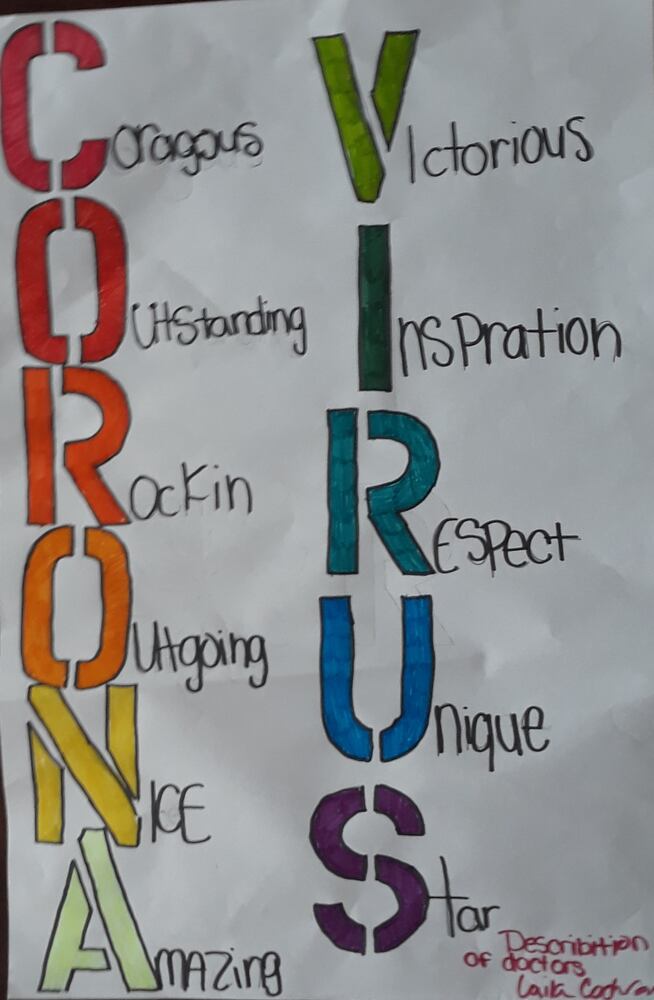 Coragous
Outstanding
Rockin
Outgoing
NICE
AmAzing
VIctorious
InsPration
RESPect
Unique
Star
Describition
of doctors
Laila Cochran